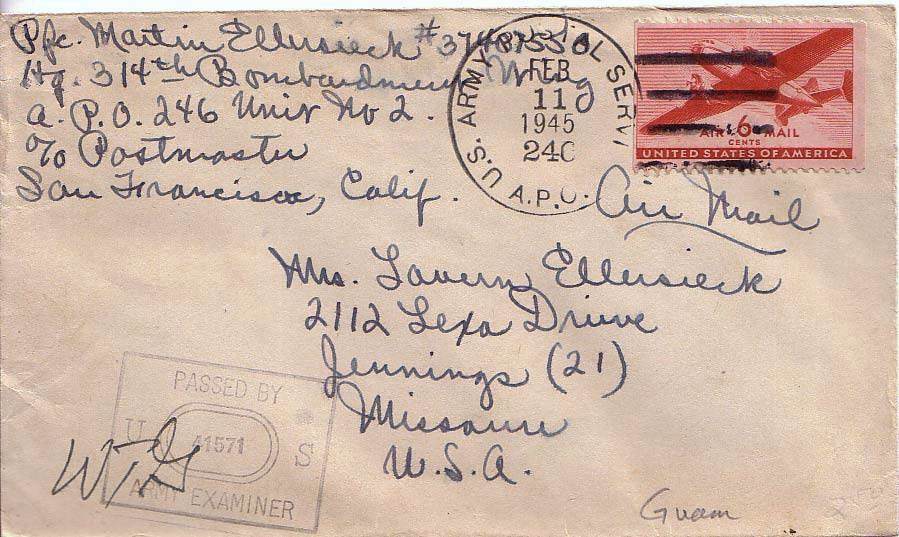 Pfc. Martin Ellersieck #
Hq. 314th Bombardment Wing
A.P.O. 246 Unit No 2.
c/o Postmaster
San Francisco, Calif.
U.S. ARMY SERV
FEB
11
1945
240
A.P.O.
AIR 6c MAIL
CENTS
UNITED STATES OF AMERICA
Air Mail
Mrs. Lavern Ellersieck
2112 Lexa Drive
Jennings (21)
Missouri
U.S.A.
PASSED BY
U 41571 S
ARMY EXAMINER
Guam